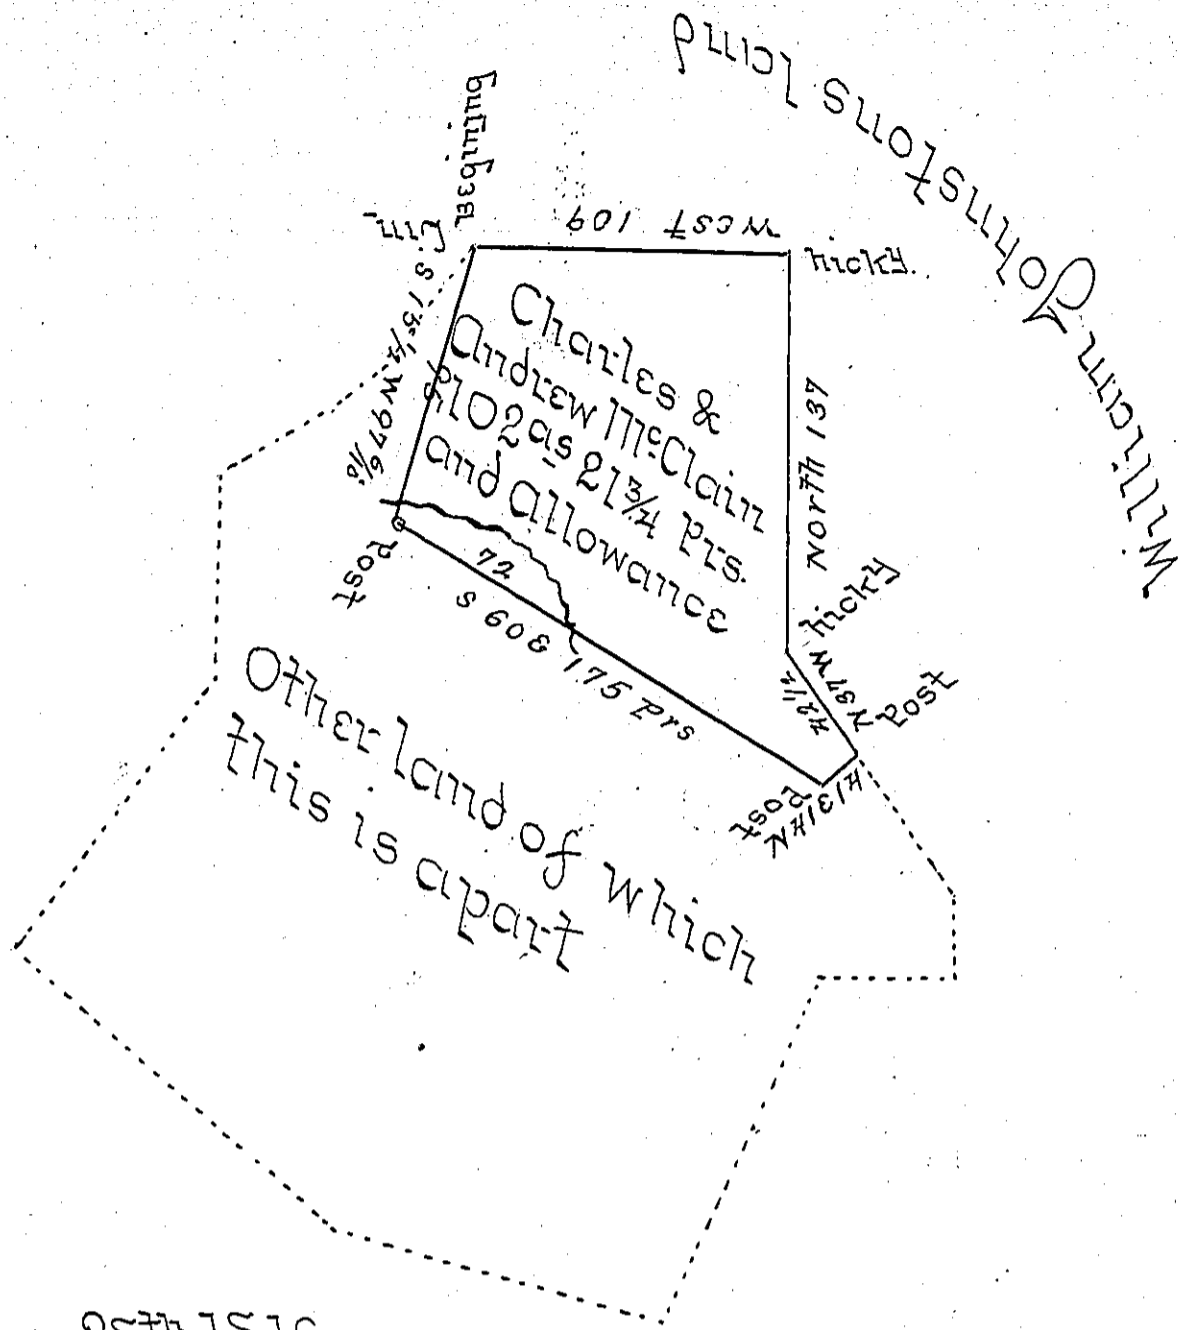 William Johnstons land
Beginning
Lin
West 109
hicky.
S 15 1/2 W 97 6/10
Charles &
Andrew McClain
102 as 21 3/4 Prs.
and allowance
North 137
hicky
N 37 W
42 1/2
Post
Post
72
S 60 E 175 Prs
Post
N 41 E 14
Other land of which
this is apart